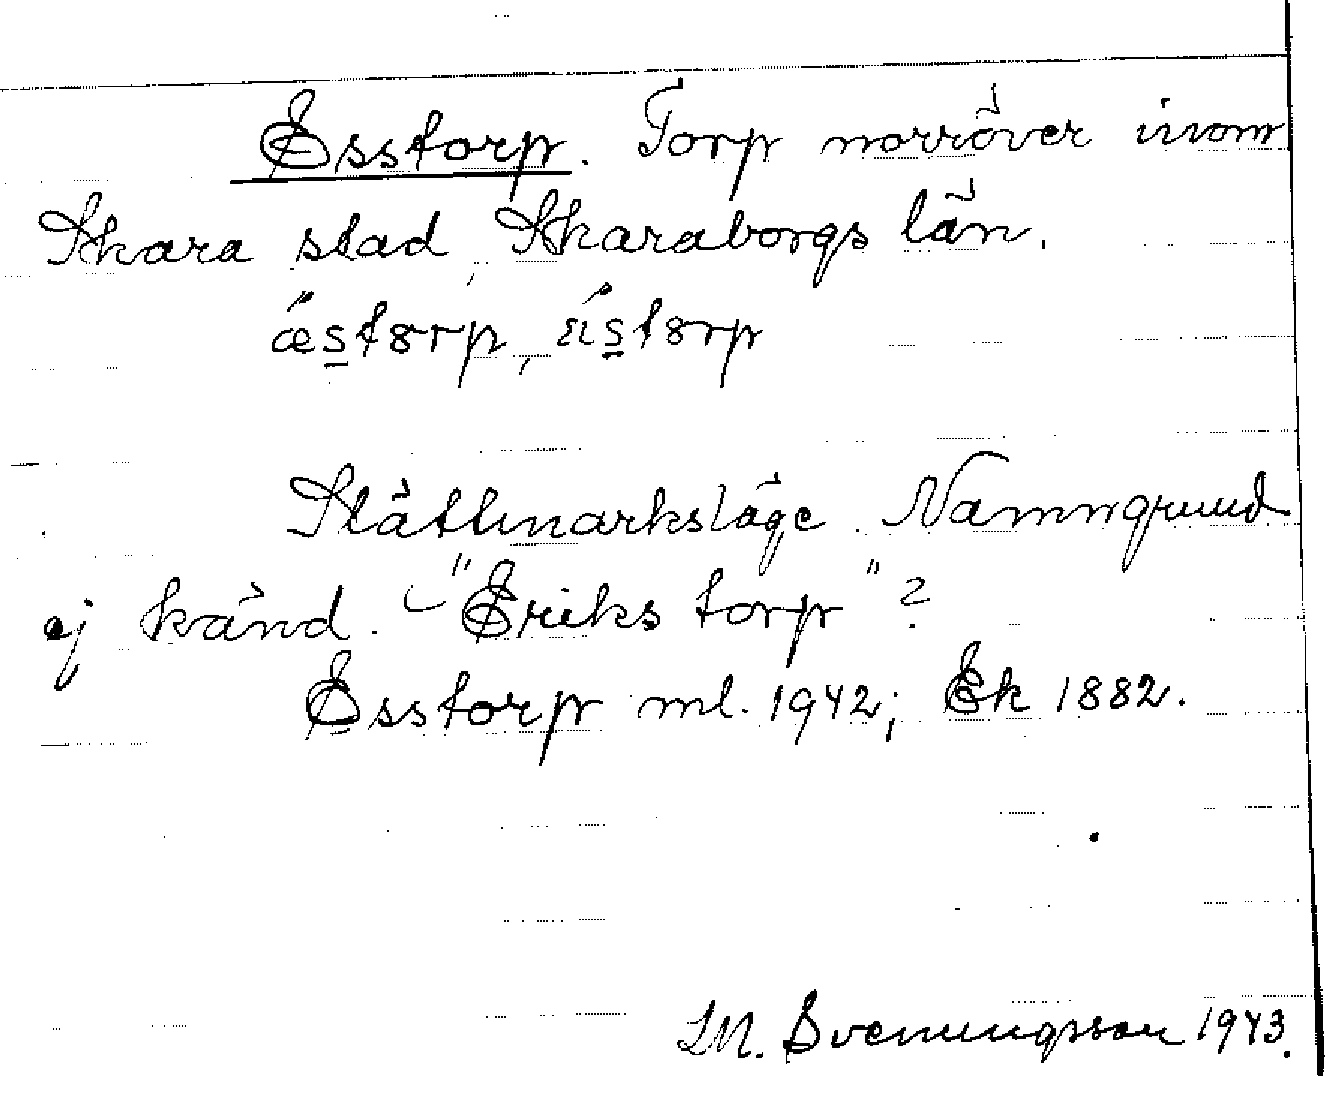 Esstorp. Torp norröver inom
Skara stad, Skaraborgs län.
æ´s̲tɔrp, ä´s̲tɔrp
Slättmarksläge. Namngrund
ej känd. "Eriks torp"?
Esstorp ml. 1942; Ek 1882.
Svenungsson 1943.